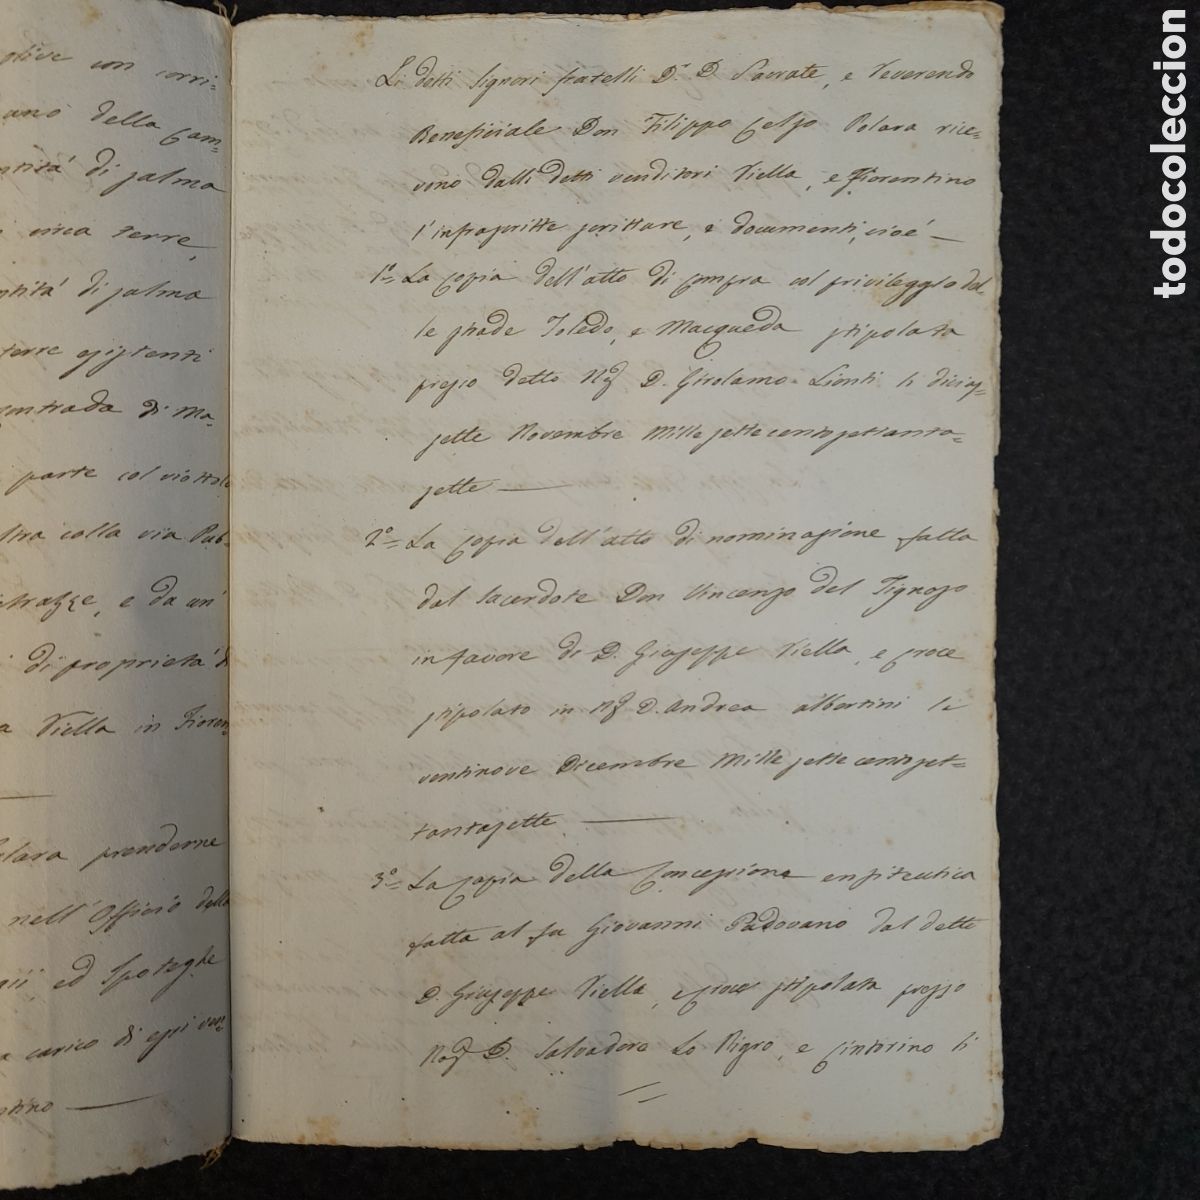 olive con corri-
ano della Cam=
ntità di salma
circa terre,
ntità di salma
terre esistenti
contrada di Ma-
parte col viottolo
ltra colla via Pub-
e, e da un'
di proprietà di
a Viella in Fioren=
olara prenderne
nell'Officio della
ed Ipoteghe
a carico di essi ven=
ntino
Li detti Signori fratelli Dr. D. Socrate, e Reverendo
Beneficiale Don Filippo Celso Polara rice=
vono dalli detti venditori Viella, e Fiorentino
l'infrascritte scritture, e documenti, cioè —
1º= La Copia dell'atto di Compra col privileggio del
le strade Toledo, e Macqueda stipolata
presso detto Nr. D. Girolamo Lionti li dicias=
sette Novembre Mille settecentosettanta=
sette —
2º= La Copia dell'atto di nominazione fatta
dal Sacerdote Don Vincenzo del Tignoso
in favore di D. Giuseppe Viella, e croce
stipolato in Nr. D. Andrea Albertini li
ventinove Dicembre Mille settecentoset=
tantasette —
3º= La Copia della Concessione enfiteutica
fatta al fu Giovanni Padovano dal detto
D. Giuseppe Viella, e croce stipolata presso
Nr. D. Salvadore Lo Pigro, e Cintorino li
todocoleccion